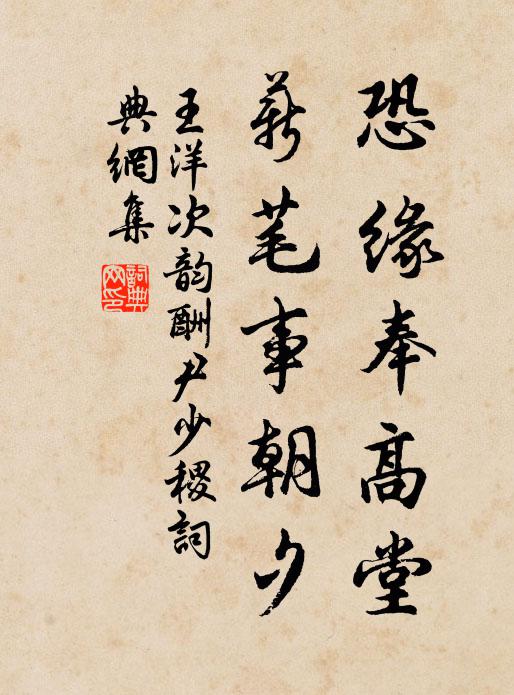 恐缘奉高堂
薪芼事朝夕
王洋次韵酬尹少稷詞
典網集
詞典
网印